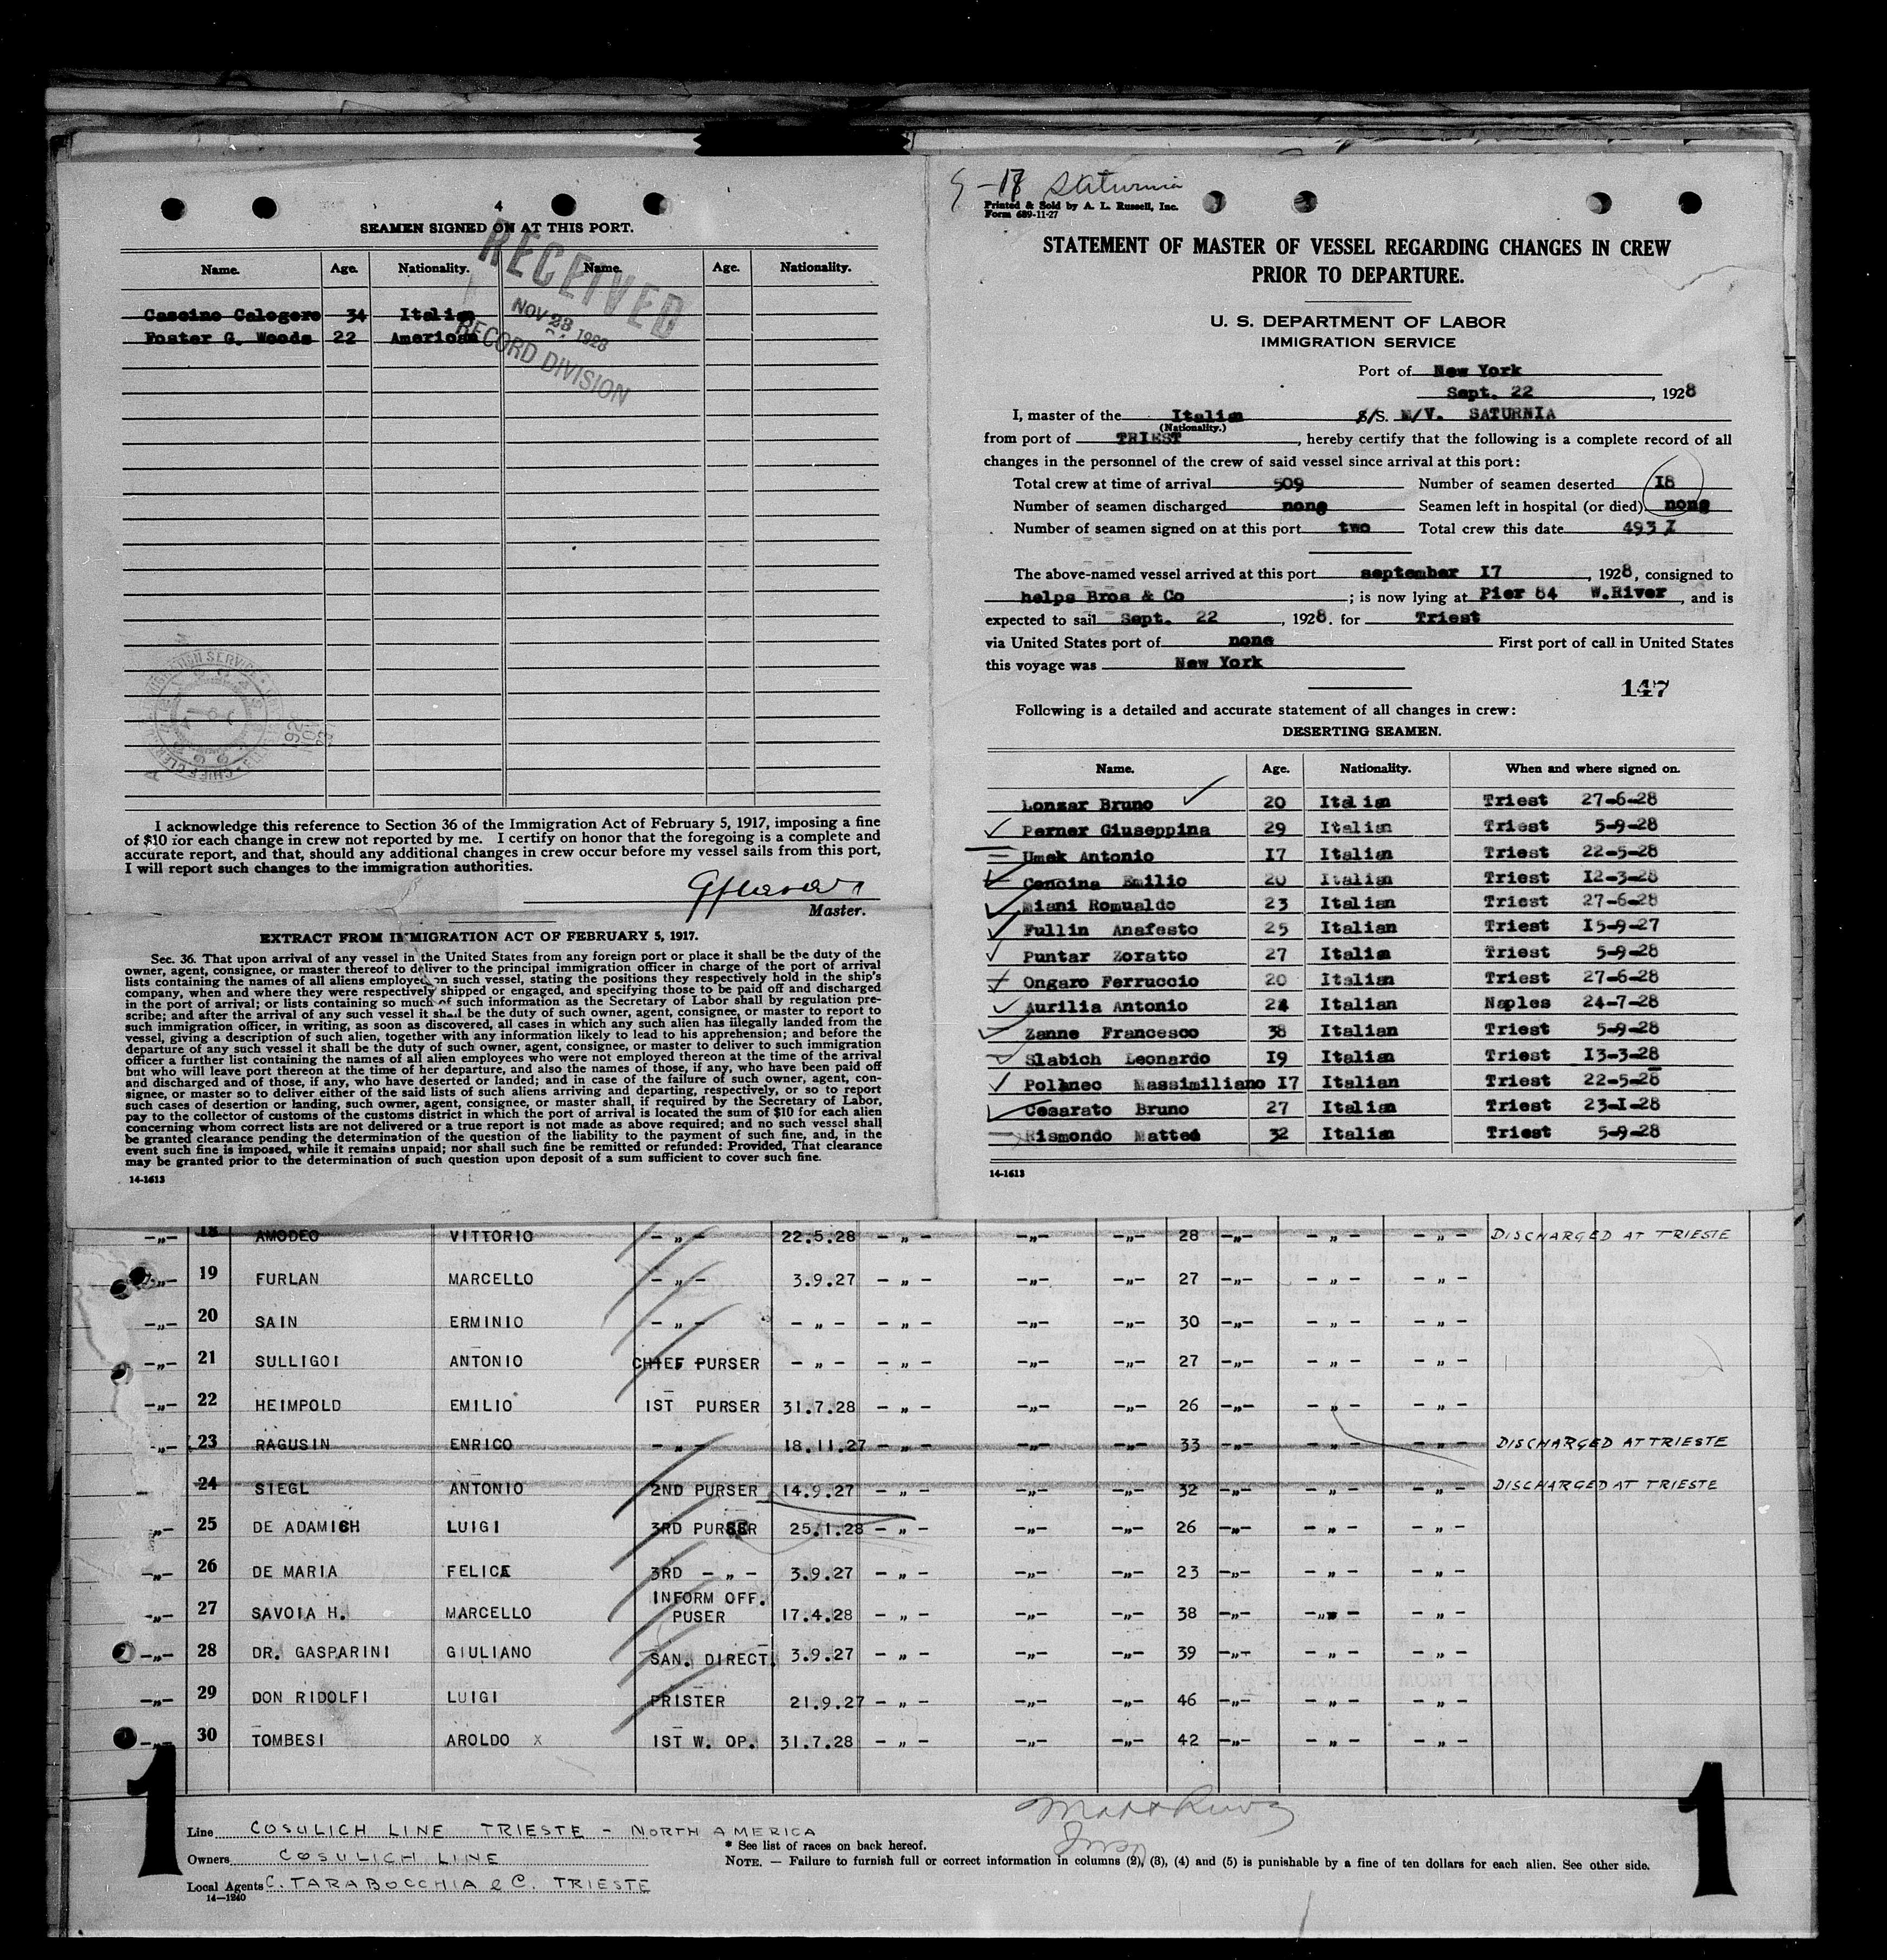 4
SEAMEN SIGNED ON AT THIS PORT.
Name. Age. Nationality. Name. Age. Nationality.
Cascino Calogero 34 Italian
Foster G. Woods 22 American
RECEIVED
NOV 23 1928
RECORD DIVISION
I acknowledge this reference to Section 36 of the Immigration Act of February 5, 1917, imposing a fine
of $10 for each change in crew not reported by me. I certify on honor that the foregoing is a complete and
accurate report, and that, should any additional changes in crew occur before my vessel sails from this port,
I will report such changes to the immigration authorities.
Master.
EXTRACT FROM IMMIGRATION ACT OF FEBRUARY 5, 1917.
Sec. 36. That upon arrival of any vessel in the United States from any foreign port or place it shall be the duty of the
owner, agent, consignee, or master thereof to deliver to the principal immigration officer in charge of the port of arrival
lists containing the names of all aliens employed on such vessel, stating the positions they respectively hold in the ship's
company, when and where they were respectively shipped or engaged, and specifying those to be paid off and discharged
in the port of arrival; or lists containing so much of such information as the Secretary of Labor shall by regulation pre-
scribe; and after the arrival of any such vessel it shall be the duty of such owner, agent, consignee, or master to report to
such immigration officer, in writing, as soon as discovered, all cases in which any such alien has illegally landed from the
vessel, giving a description of such alien, together with any information likely to lead to his apprehension; and before the
departure of any such vessel it shall be the duty of such owner, agent, consignee, or master to deliver to such immigration
officer a further list containing the names of all alien employees who were not employed thereon at the time of the arrival
but who will leave port thereon at the time of her departure, and also the names of those, if any, who have been paid off
and discharged and of those, if any, who have deserted or landed; and in case of the failure of such owner, agent, con-
signee, or master so to deliver either of the said lists of such aliens arriving and departing, respectively, or so to report
such cases of desertion or landing, such owner, agent, consignee, or master shall, if required by the Secretary of Labor,
pay to the collector of customs of the customs district in which the port of arrival is located the sum of $10 for each alien
concerning whom correct lists are not delivered or a true report is not made as above required; and no such vessel shall
be granted clearance pending the determination of the question of the liability to the payment of such fine, and, in the
event such fine is imposed, while it remains unpaid; nor shall such fine be remitted or refunded: Provided, That clearance
may be granted prior to the determination of such question upon deposit of a sum sufficient to cover such fine.
14-1613
Saturnia
Printed & Sold by A. L. Russell, Inc.
Form 689-11-27
STATEMENT OF MASTER OF VESSEL REGARDING CHANGES IN CREW
PRIOR TO DEPARTURE.
U. S. DEPARTMENT OF LABOR
IMMIGRATION SERVICE
Port of New York
Sept. 22, 1928
I, master of the Italian S/S. M/V. SATURNIA
(Nationality.)
from port of TRIEST, hereby certify that the following is a complete record of all
changes in the personnel of the crew of said vessel since arrival at this port:
Total crew at time of arrival 509 Number of seamen deserted 18
Number of seamen discharged none Seamen left in hospital (or died) none
Number of seamen signed on at this port two Total crew this date 493
The above-named vessel arrived at this port september 17, 1928, consigned to
helps Bros & Co; is now lying at Pier 84 W.River, and is
expected to sail Sept. 22, 1928. for Triest
via United States port of none First port of call in United States
this voyage was New York
147
Following is a detailed and accurate statement of all changes in crew:
DESERTING SEAMEN.
Name. Age. Nationality. When and where signed on.
Lonzar Bruno 20 Italian Triest 27-6-28
Perner Giuseppina 29 Italian Triest 5-9-28
Umek Antonio 17 Italian Triest 22-5-28
Cencina Emilio 20 Italian Triest 12-3-28
Miani Romualdo 23 Italian Triest 27-6-28
Fullin Anafesto 25 Italian Triest 15-9-27
Puntar Zoratto 27 Italian Triest 5-9-28
Ongaro Ferruccio 20 Italian Triest 27-6-28
Aurilia Antonio 24 Italian Naples 24-7-28
Zanne Francesco 38 Italian Triest 5-9-28
Slabich Leonardo 19 Italian Triest 13-3-28
Pollnec Massimiliano 17 Italian Triest 22-5-28
Cesarato Bruno 27 Italian Triest 23-1-28
Rismondo Matteo 32 Italian Triest 5-9-28
14-1613
-„- 18 AMODEO VITTORIO -„- 22.5.28 -„- -„- -„- 28 -„- -„- -„- DISCHARGED AT TRIESTE
-„- 19 FURLAN MARCELLO -„- 3.9.27 -„- -„- -„- 27 -„- -„- -„-
-„- 20 SAIN ERMINIO -„- -„- -„- -„- -„- 30 -„- -„- -„-
-„- 21 SULLIGOI ANTONIO CHIEF PURSER -„- -„- -„- -„- 27 -„- -„- -„-
-„- 22 HEIMPOLD EMILIO 1ST PURSER 31.7.28 -„- -„- -„- 26 -„- -„- -„-
-„- 23 RAGUSIN ENRICO -„- 18.11.27 -„- -„- -„- 33 -„- -„- -„- DISCHARGED AT TRIESTE
- 24 SIEGL ANTONIO 2ND PURSER 14.9.27 -„- -„- -„- 32 -„- -„- -„- DISCHARGED AT TRIESTE
-„- 25 DE ADAMICH LUIGI 3RD PURSER 25.1.28 -„- -„- -„- 26 -„- -„- -„-
-„- 26 DE MARIA FELICE 3RD -„- 3.9.27 -„- -„- -„- 23 -„- -„- -„-
-„- 27 SAVOIA H. MARCELLO INFORM OFF. PUSER 17.4.28 -„- -„- -„- 38 -„- -„- -„-
-„- 28 DR. GASPARINI GIULIANO SAN. DIRECT. 3.9.27 -„- -„- -„- 39 -„- -„- -„-
-„- 29 DON RIDOLFI LUIGI PRISTER 21.9.27 -„- -„- -„- 46 -„- -„- -„-
-„- 30 TOMBESI AROLDO X 1ST W. OP. 31.7.28 -„- -„- -„- 42 -„- -„- -„-
1 1
Line COSULICH LINE TRIESTE - NORTH AMERICA
* See list of races on back hereof.
Owners COSULICH LINE
NOTE. — Failure to furnish full or correct information in columns (2), (3), (4) and (5) is punishable by a fine of ten dollars for each alien. See other side.
Local Agents C. TARABOCCHIA & C. TRIESTE
14—1240